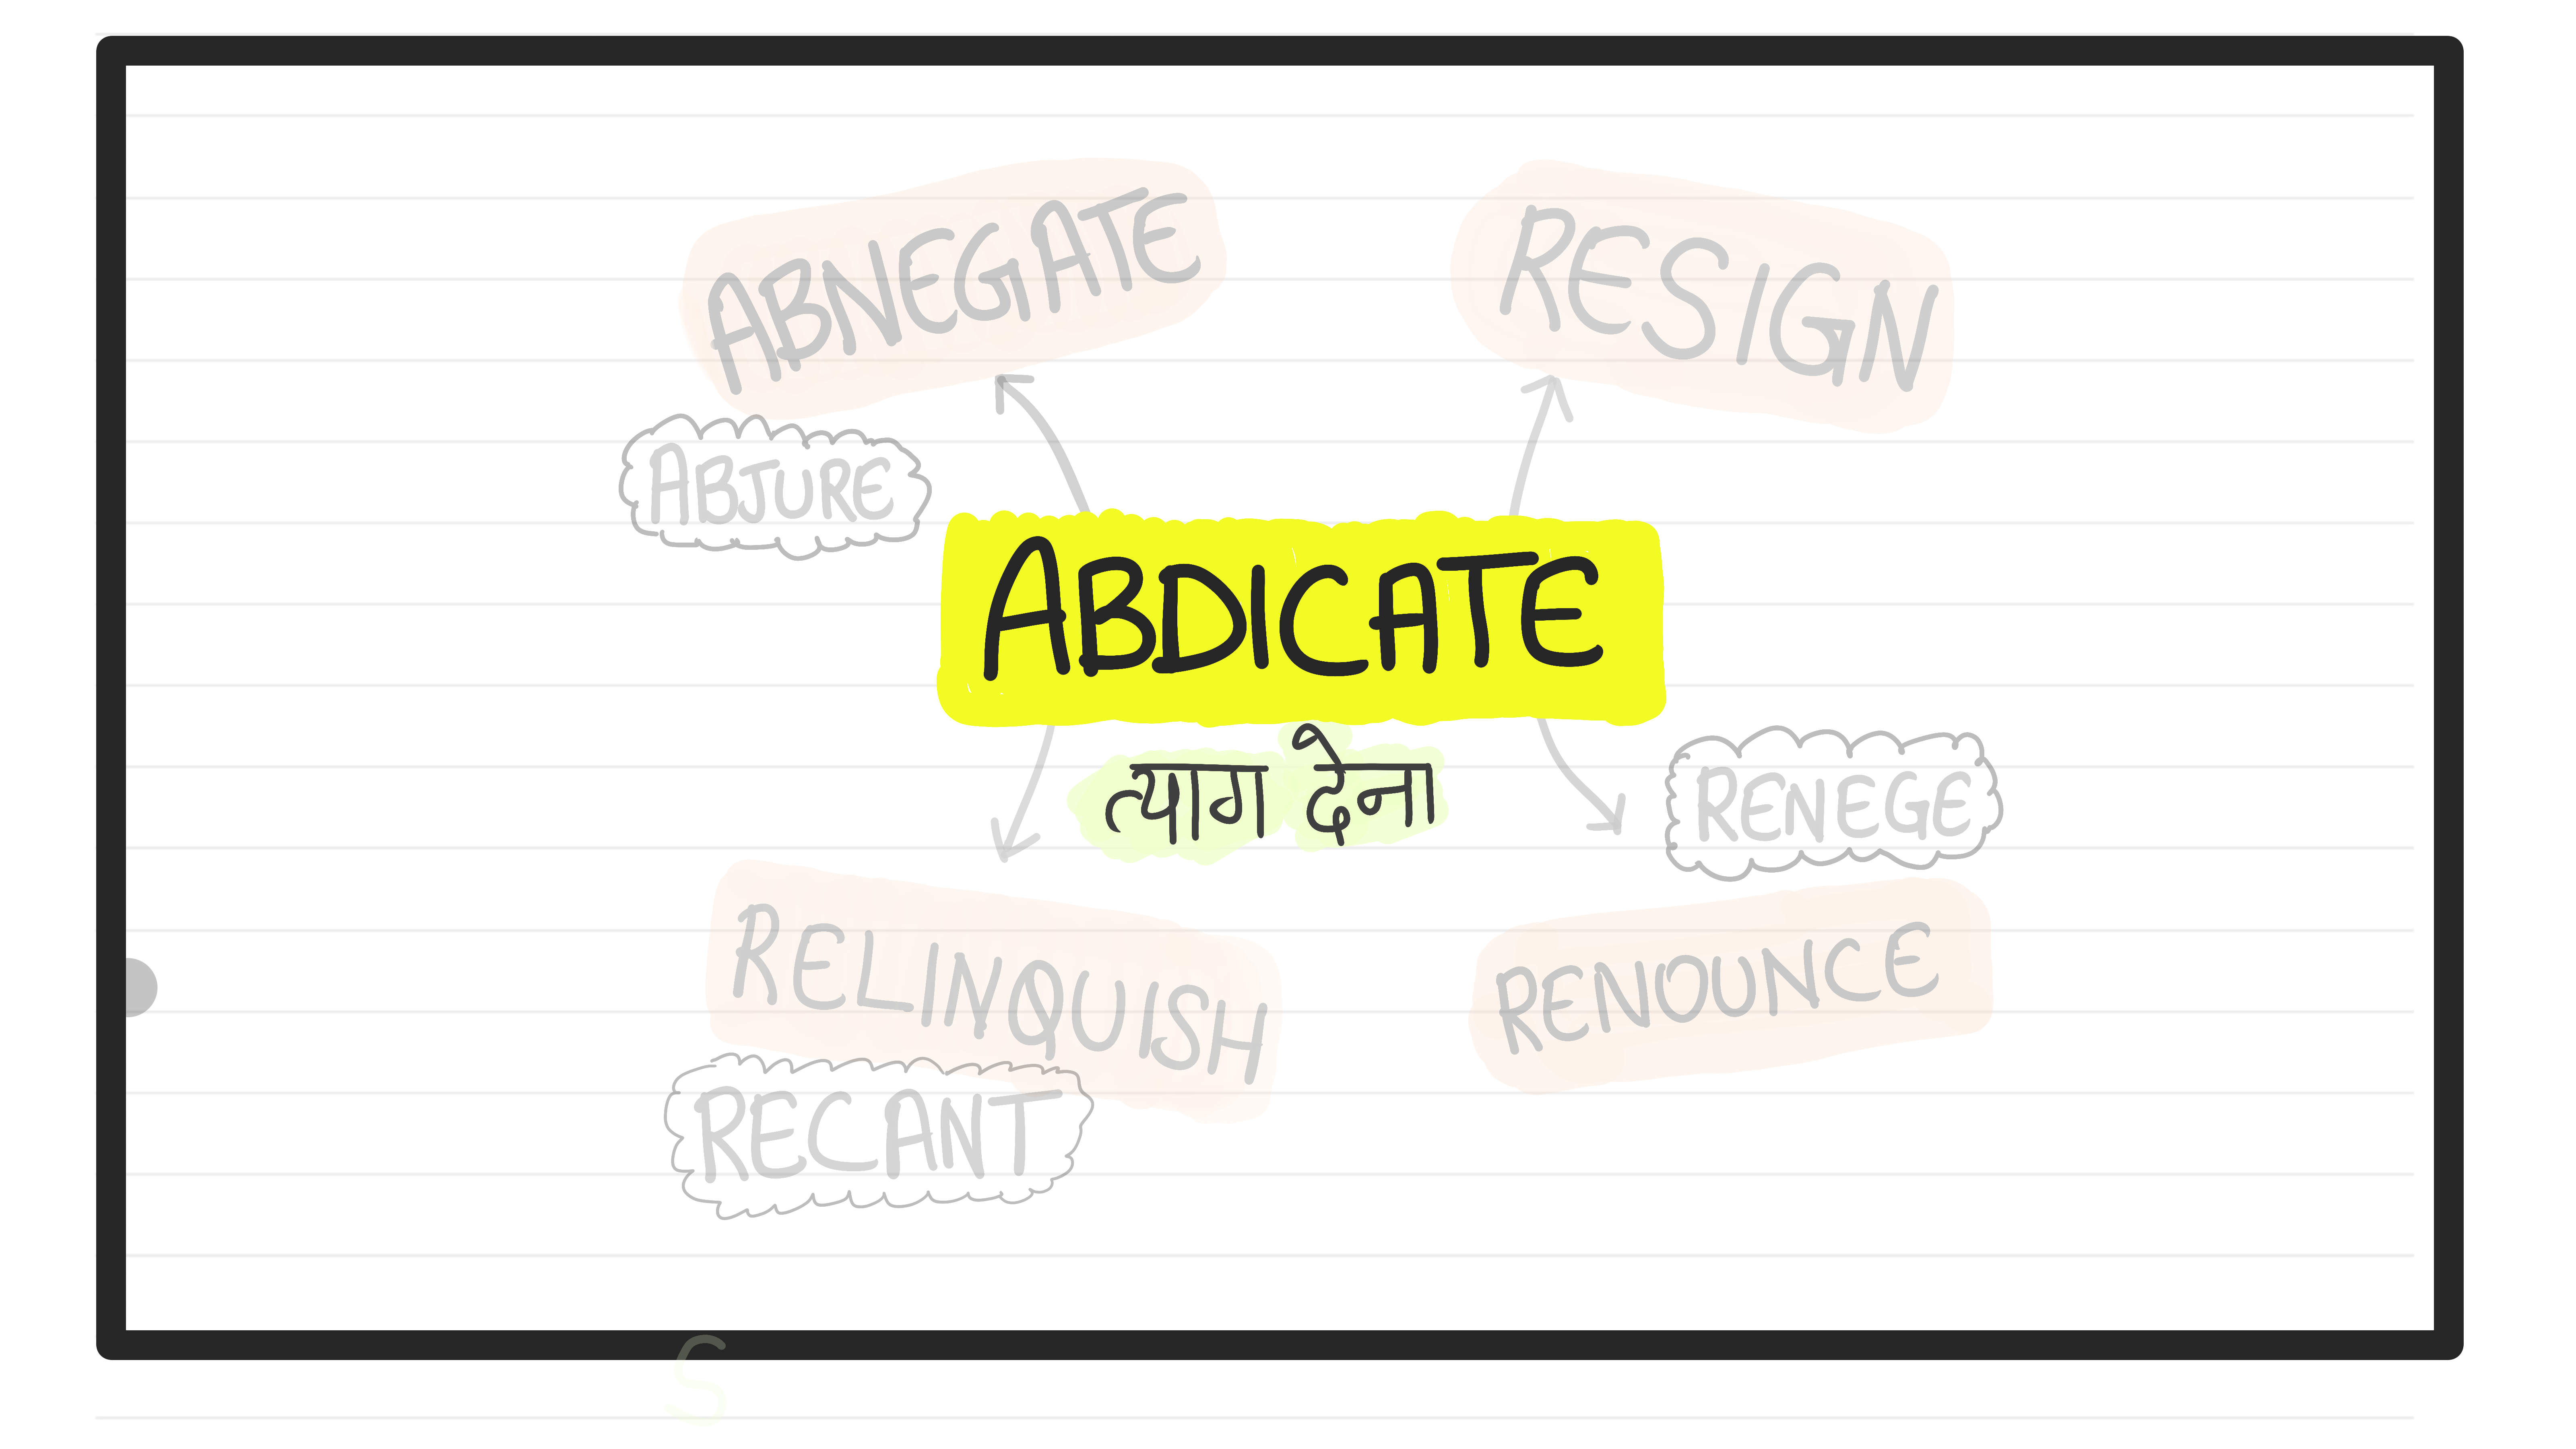 ABNEGATE
RESIGN
ABJURE
ABDICATE
त्याग देना
RENEGE
RELINQUISH
RENOUNCE
RECANT
S